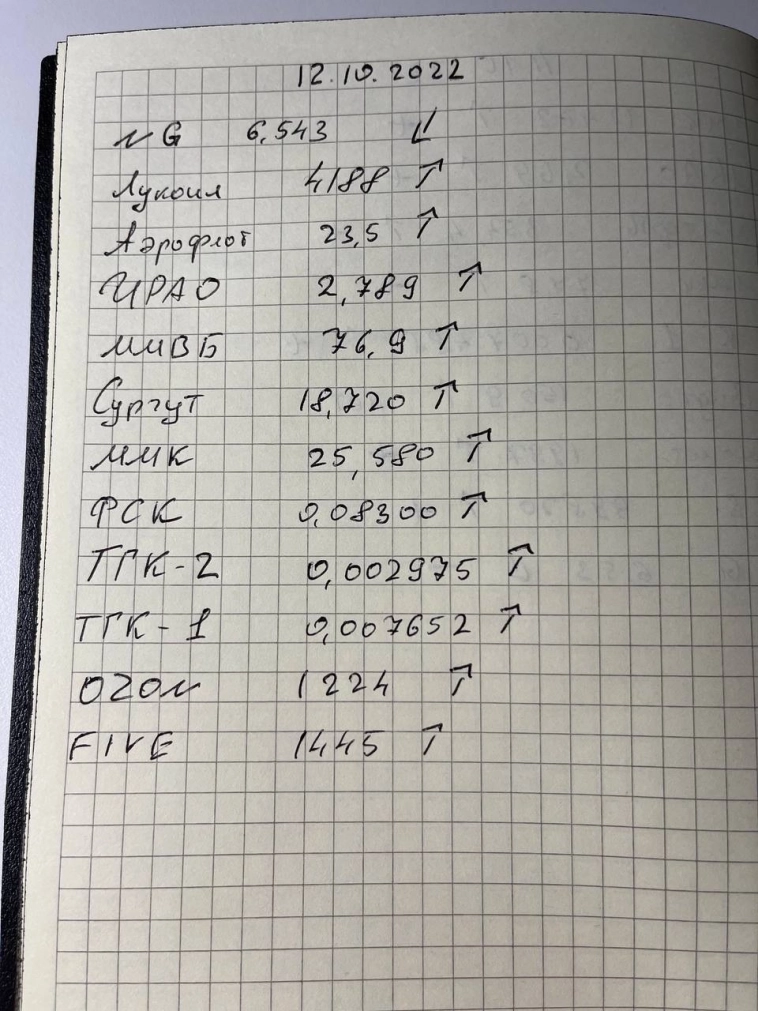 12.10.2022
NG 6,543 ↓
Лукоил 4188 ↑
Аэрофлот 23,5 ↑
ИРАО 2,789 ↑
ММВБ 76,9 ↑
Сургут 18,720 ↑
ММК 25,580 ↑
ФСК 0,08300 ↑
ТГК-2 0,002975 ↑
ТГК-1 0,007652 ↑
OZON 1224 ↑
FIVE 1445 ↑